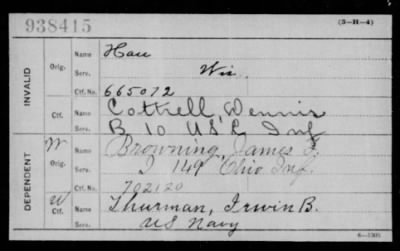 938415
(3-H-4)
INVALID
Orig.
Name
Serv. Wis.
Ctf. No. 665072
Ctf.
Cottrell, Dennis
B 10 US Inf
DEPENDENT
W
Orig.
Name Browning, James F.
Serv. I 149 Ohio Inf.
Ctf. No. 702120
W
Ctf.
Name Thurman, Irwin B.
Serv. US Navy
6-1305